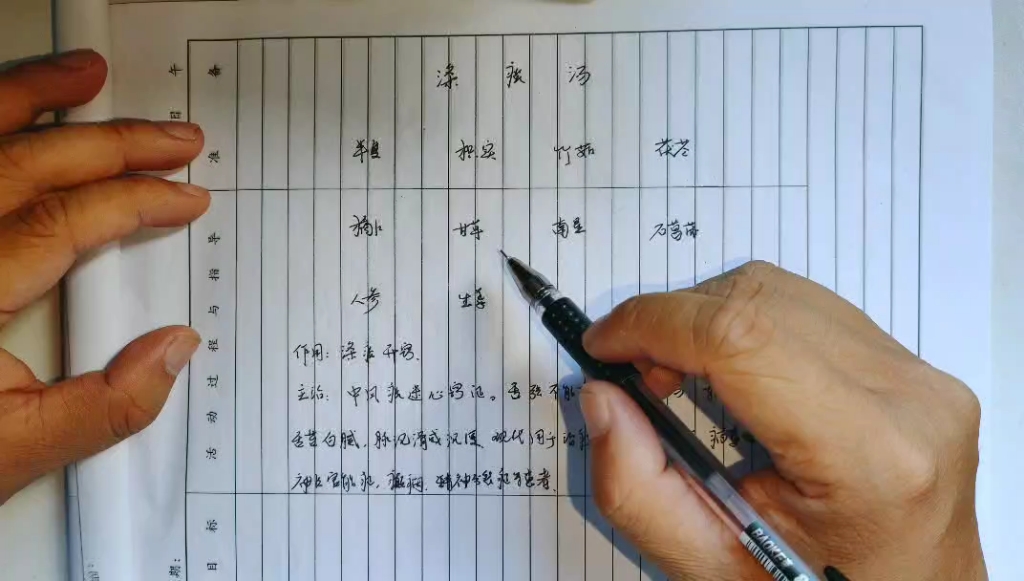 涤 痰 汤
半夏 枳实 竹茹 茯苓
橘红 甘草 南星 石菖蒲
人参 生姜
作用：涤痰开窍.
主治：中风痰迷心窍证。舌强不能
舌苔白腻，脉沉滑或沉缓 现代用于治
神经官能症，癫痫，精神分裂症等患者.
准备
活动过程与指导
目标
BAOKE